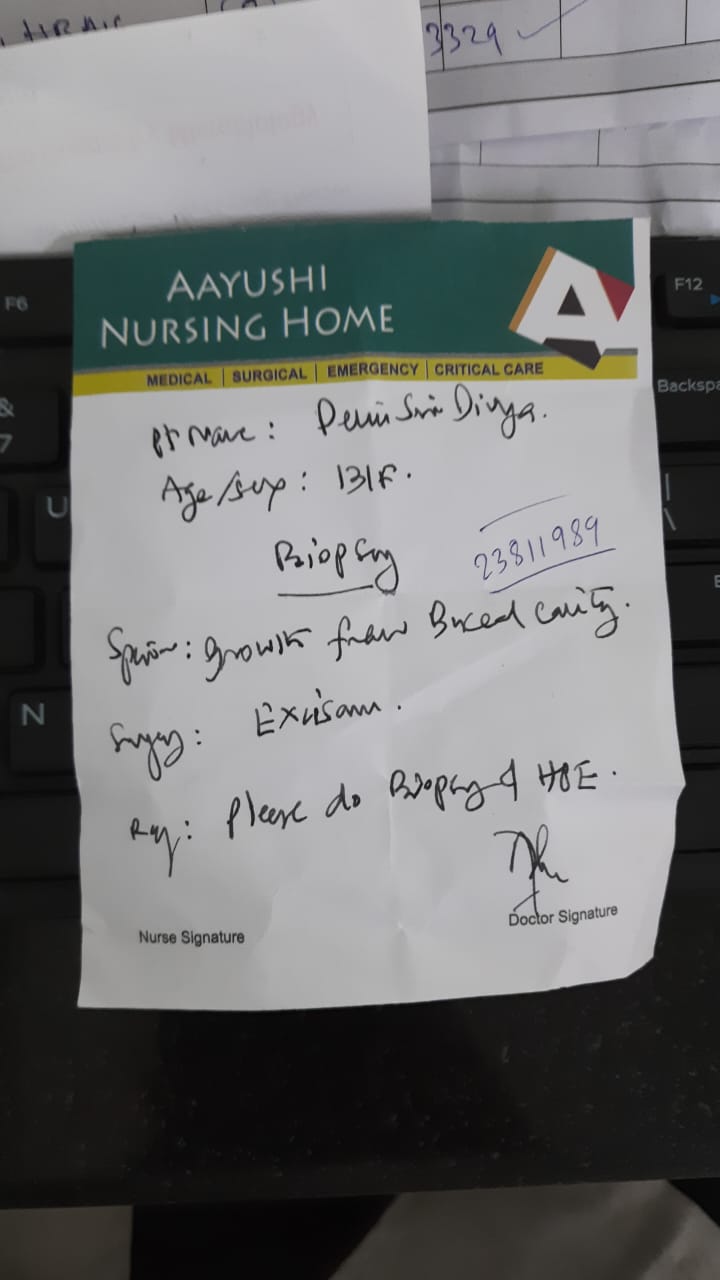 3329
AAYUSHI
NURSING HOME
MEDICAL | SURGICAL | EMERGENCY | CRITICAL CARE
Pt Name : Divya.
Age/sex : 13/F.
Biopsy
23811989
growth from Buccal cavity.
Excision.
Please do Biopsy HPE.
Doctor Signature
Nurse Signature
F6
F12
Backspa
&
7
U
|
\
N